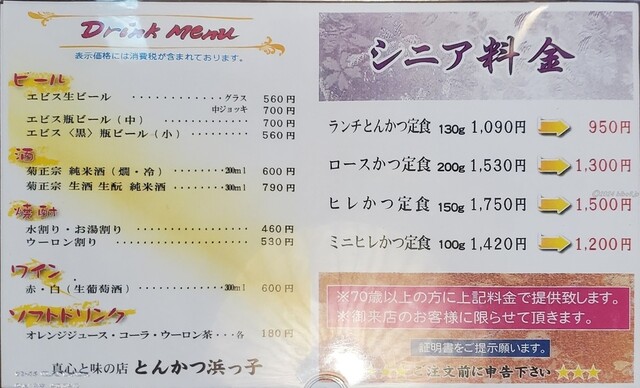 Drink Menu
表示価格には消費税が含まれております。
ビール
エビス生ビール ・・・・・・・・・ グラス 560円
中ジョッキ 700円
エビス瓶ビール（中） ・・・・・・・・・ 700円
エビス〈黒〉瓶ビール（小） ・・・・・・・ 560円
酒
菊正宗 純米酒（燗・冷） ・・・・・・・200ml 600円
菊正宗 生酒 生酛 純米酒 ・・・・・・・300ml 790円
焼酎
水割り・お湯割り ・・・・・・・・・・・・ 460円
ウーロン割り ・・・・・・・・・・・・・ 530円
ワイン
赤・白（生葡萄酒） ・・・・・・・・300ml 600円
ソフトドリンク
オレンジジュース・コーラ・ウーロン茶・・・各 180円
真心と味の店 とんかつ浜っ子
シニア料金
ランチとんかつ定食 130g 1,090円 950円
ロースかつ定食 200g 1,530円 1,300円
ヒレかつ定食 150g 1,750円 1,500円
ミニヒレかつ定食 100g 1,420円 1,200円
※70歳以上の方に上記料金で提供致します。
※御来店のお客様に限らせて頂きます。
証明書をご提示願います。
★★★ご注文前に申告下さい★★★